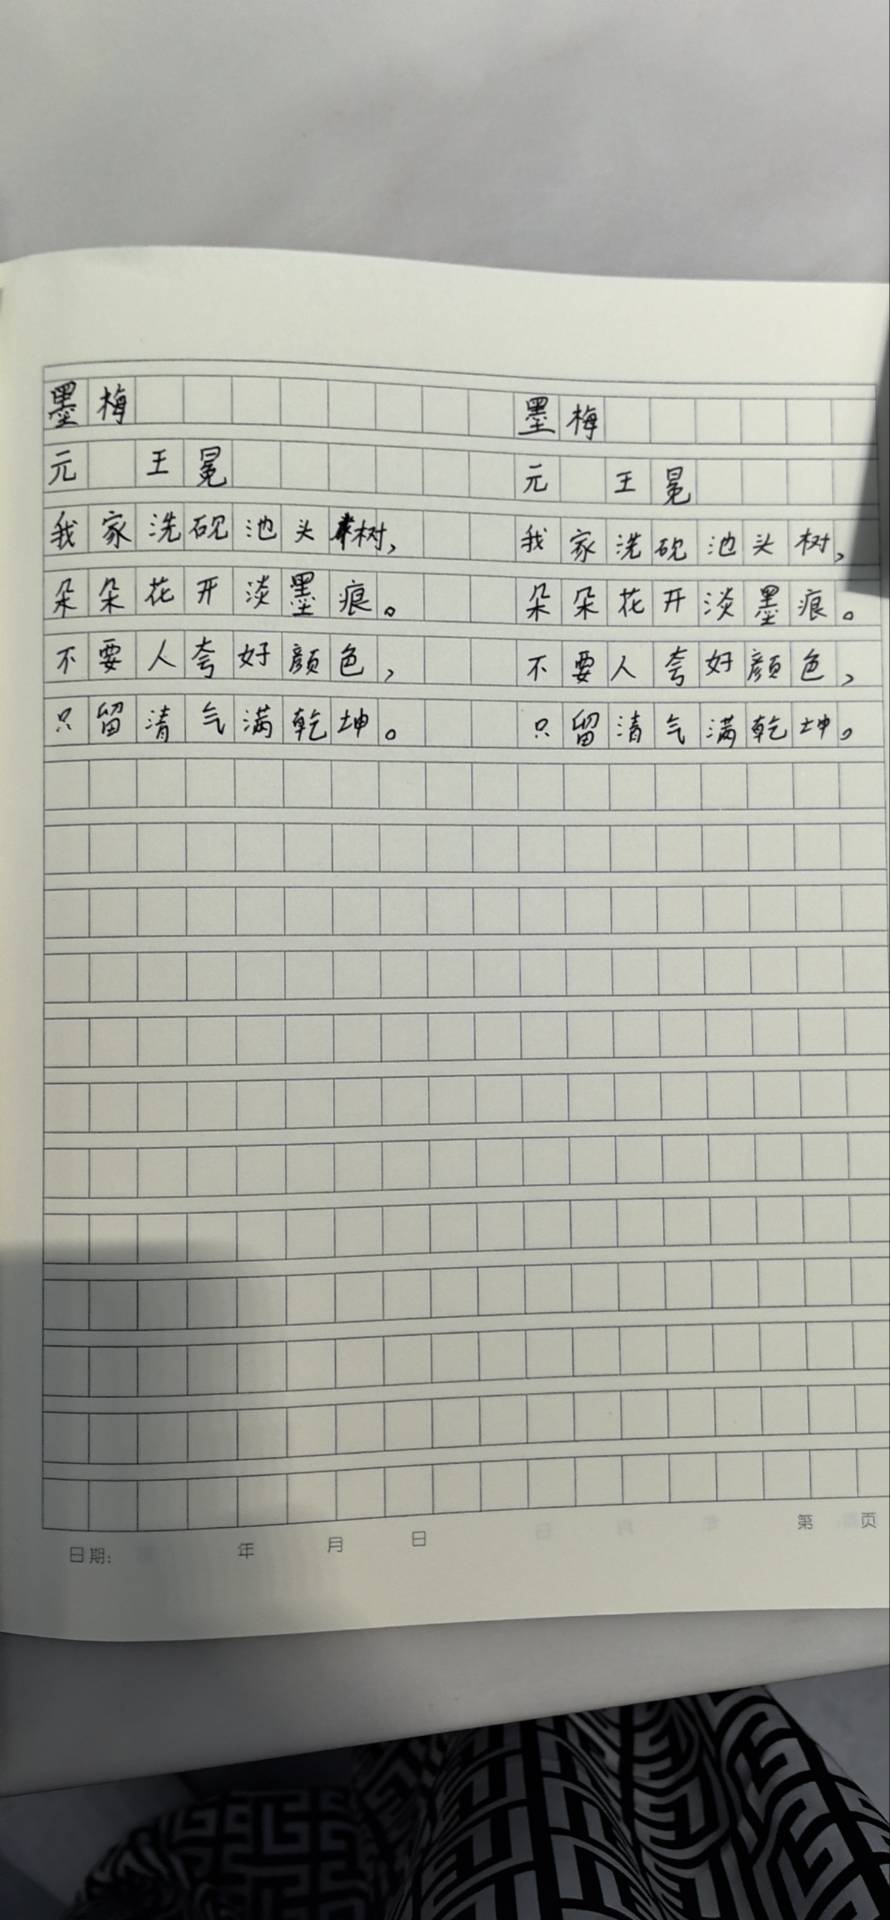 墨梅
元 王冕
我家洗砚池头树,
朵朵花开淡墨痕。
不要人夸好颜色,
只留清气满乾坤。
墨梅
元 王冕
我家洗砚池头树,
朵朵花开淡墨痕。
不要人夸好颜色,
只留清气满乾坤。
日期: 年 月 日 第 页